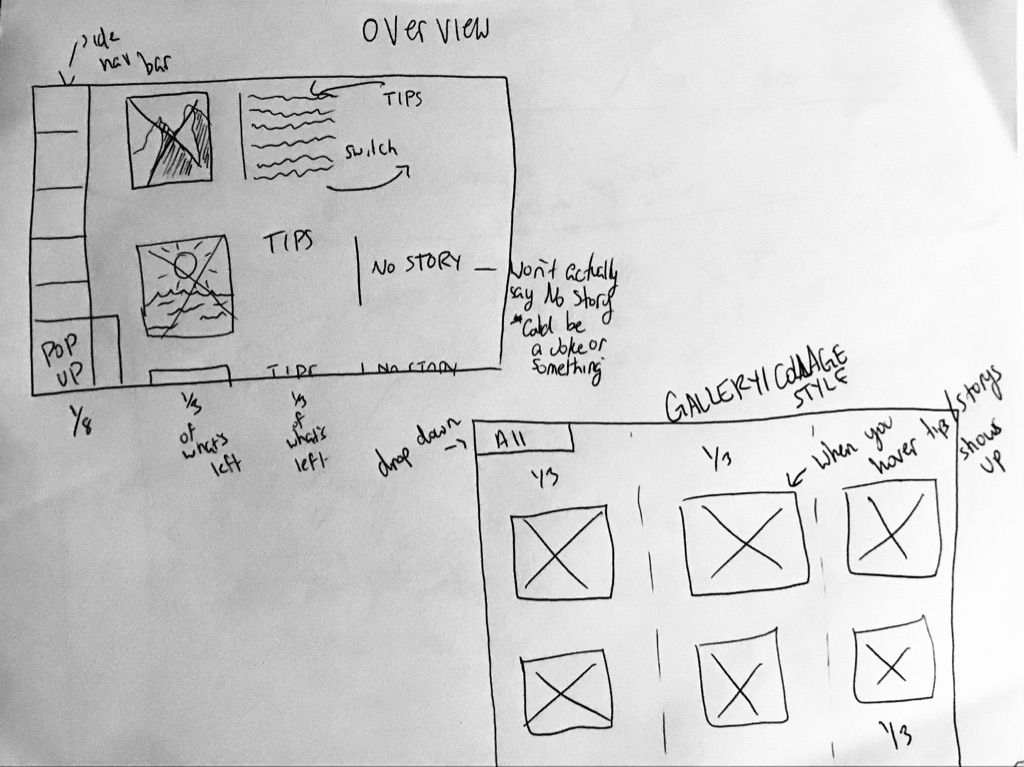 OVERVIEW
side
nav bar
TIPS
switch
TIPS
NO STORY
Won't actually
say No Story
*Could be
a Joke or
Something
POP
UP
TIPS
NO STORY
1/8
1/3
of
what's
left
1/3
of
what's
left
GALLERY/COLLAGE
STYLE
drop down
All
1/3
1/3
when you
hover tips/storys
shows
up
1/3